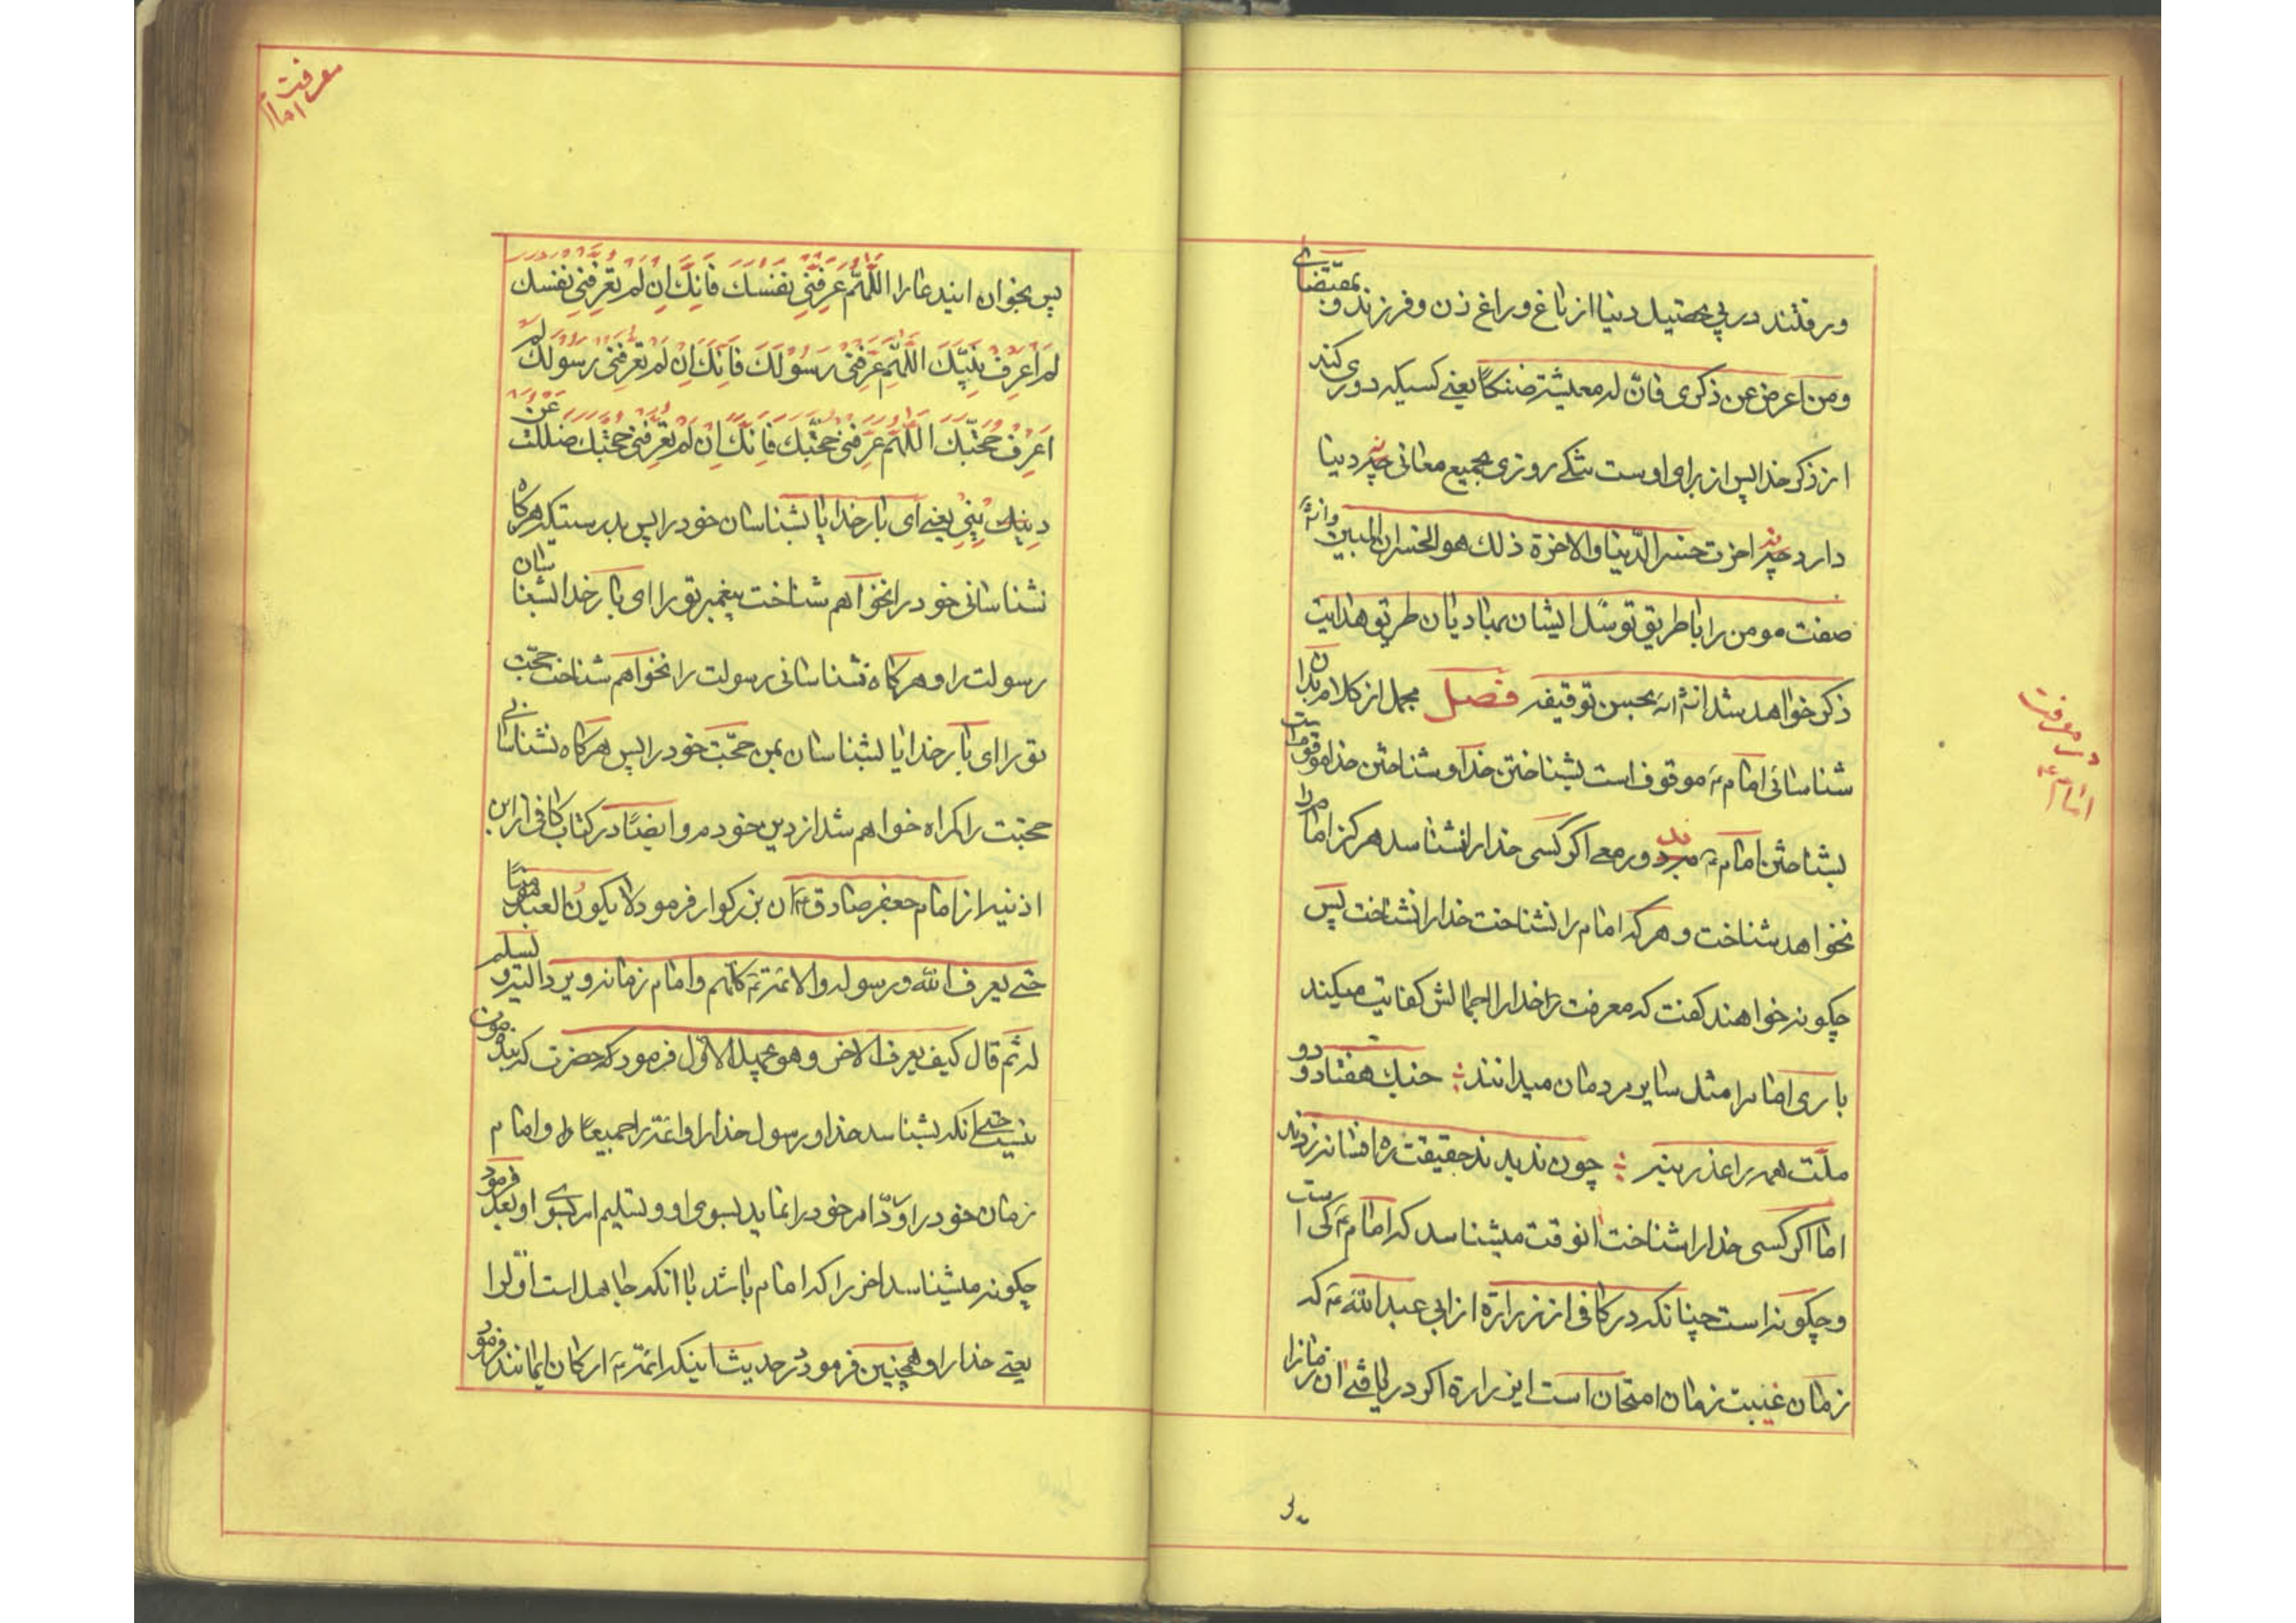 ورفتند در پی تحصیل دنیا از باغ و راغ و زن و فرزند و بمقتضای
ومن اعرض عن ذکری فانّ له معیشة ضنکًا یعنی کسیکه دوری کند
از ذکر خدا پس از برای اوست تنگی روزی بجمیع معانی چه در دنیا
دارد چه در اخرت خسر الدّنیا والاخرة ذلک هو الخسران المبین و انشاء
صفت مومن را با طریق توسّل ایشان بمبادیان طریق هدایت
ذکر خواهد شد انشاءالله بحسن توفیقه فصل مجمل از کلام بدان
شناسائی امام ع موقوف است بشناختن خدا و شناختن خدا موقوفست
بشناختن امام ع دور معی اگر کسی خدا را نشناسد هرگز امام را
نخواهد شناخت و هرکه امام را نشناخت خدا را نشناخت پس
چگونه خواهند گفت که معرفت خدا را اجمالش کفایت میکند
باری امام را مثل سایر مردمان میدانند جنگ هفتاد و دو
ملّت همه را عذر بنه چون ندیدند حقیقت ره افسانه زدند
امّا اگر کسی خدا را شناخت انوقت میشناسد که امام ع کی است
و چگونه است چنانکه در کافی از زرارة از ابی عبدالله ع که
زمان غیبت زمان امتحان است ای زرارة اگر دریافتی ان زمانرا
در معرفت
امام ع
معرفت
امام
پس بخوان ایندعا را اللّهُمّ عَرِّفنی نفسک فَاِنّکَ اِن لم تعرِّفنی نفسک
لم اعرف نبیّک اللّهمّ عرّفنی رسولک فانّک ان لم تعرّفنی رسولک لم
اعرف حجّتک اللّهمّ عرّفنی حجّتک فانّک ان لم تعرّفنی حجّتک ضللت عن
دینک یعنی ای بارخدایا بشناسان خود را پس بدرستیکه هرگاه
نشناسانی خود را نخواهم شناخت پیغمبر تو را ای بار خدا بشناسان
رسولت را و هرگاه نشناسانی رسولت را نخواهم شناخت حجّت
تو را ای بار خدایا بشناسان بمن حجّت خود را پس هرگاه نشناسانی
حجّتت را گمراه خواهم شد از دین خودم و ایضًا در کتاب کافی از ابن
اذنیه از امام جعفر صادق ع ان بزرگوار فرمود لا یکون العبد مؤمنًا
حتّی یعرف الله و رسوله والائمّة ع کلّهم و امام زمانه ویردّ الیه و یسلّم
له ثم قال کیف یعرف الاخر و هو یجهل الاوّل فرمود که حضرت که بنده مومن
نیست حتّی انکه بشناسد خدا و رسول خدا را و ائمّه را جمیعًا و امام
زمان خود را و ردّ امر خود را نماید بسوی او و تسلیم امر بسوی او بعد فرمود
چگونه میشناسد اخر را که امام باشد با انکه جاهل است اوّل را
یعنی خدا را و همچنین فرمود در حدیث اینکه ائمّه ع ارکان ایمانند فرمود